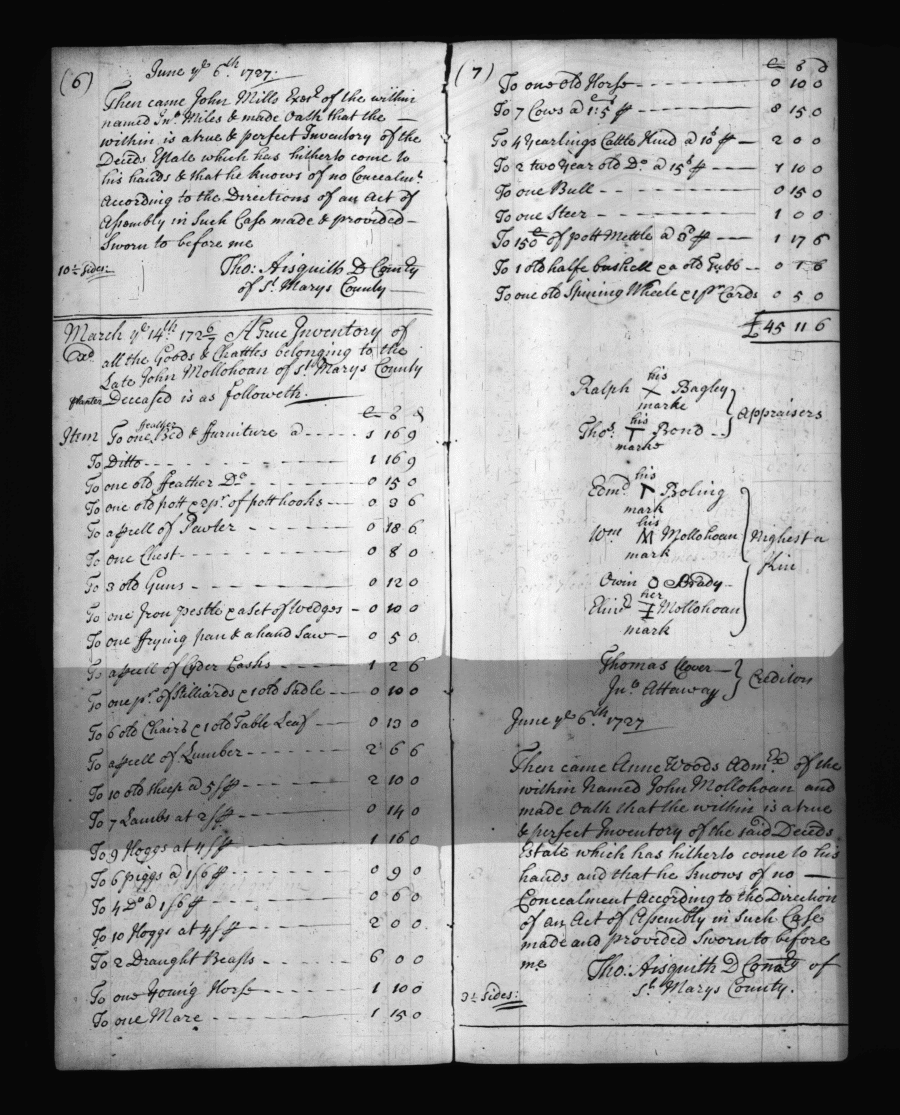 (6)
June ye 6th. 1727:
Then came John Mills Exer. of the within
named Jno. Miles & made Oath that the —
within is a true & perfect Inventory of the
Deceds Estate which has hitherto come to
his hands & that he knows of no Concealmt
According to the Directions of an Act of
Assembly in Such Case made & provided —
Sworn to before me
10½ Sides:
Tho: Aisquith D Comty
of St. Marys County —
March ye 14th 1726/7 A True Inventory of
Exd. all the Goods & Chattles belonging to the
Late John Mollohoan of St. Marys County
planter Deceased is as followeth.
£ S d
Item To one ffeather Bed & furniture a 1 16 9
To Ditto 1 16 9
To one old ffeather Do 0 15 0
To one old pott & pr. of pott hooks 0 3 6
To a pcell of Pewter 0 18 6
To one Chest 0 8 0
To 3 old Guns 0 12 0
To one Iron pestle & a Set of Wedges 0 10 0
To one ffrying pan & a hand Saw 0 5 0
To a pcell of Cyder Casks 1 2 6
To one pr. of Stilliards & 1 old Sadle 0 10 0
To 6 old Chairs & 1 old Table Leaf 0 13 0
To a pcell of Lumber 2 6 6
To 10 old Sheep a 5/ p 2 10 0
To 7 Lambs at 2/ p 0 14 0
To 9 Hoggs at 4/ p 1 16 0
To 6 piggs a 1/6 p 0 9 0
To 4 Do a 1/6 p 0 6 0
To 10 Hoggs at 4/ p 2 0 0
To 2 Draught Beasts 6 0 0
To one Young Horse 1 10 0
To one Mare 1 15 0
(7)
£ S d
To one old Horse 0 10 0
To 7 Cows a 1:5s p 8 15 0
To 4 Yearlings Cattle Kind a 10s p 2 0 0
To 2 two Year old Do. a 15s p 1 10 0
To one Bull 0 15 0
To one Steer 1 0 0
To 150 of pott Mettle a p 1 17 6
To 1 old halfe bushell & a old Tubb 0 1 6
To one old Spining Wheele & 1 pr Cards 0 5 0
£45 11 6
his
Ralph X Bagley
marke
his
Thos. T Bond
marke
Appraisers
his
Edmd. Boling
mark
his
Wm M Mollohoan
mark
Owin O Brady
her
Elinr I Mollohoan
mark
Nighest a
Kin
Thomas Clover
Jno. Attaway
Creditors
June ye 6th. 1727
Then came Anne Woods Admrx of the
within Named John Mollohoan and
made Oath that the within is a true
& perfect Inventory of the said Deceds
Estate which has hitherto come to his
hands and that he knows of no —
Concealment According to the Direction
of an Act of Assembly in Such Case
made and provided Sworn to before
me Tho: Aisquith D Comty of
St. Marys County.
3½ Sides: